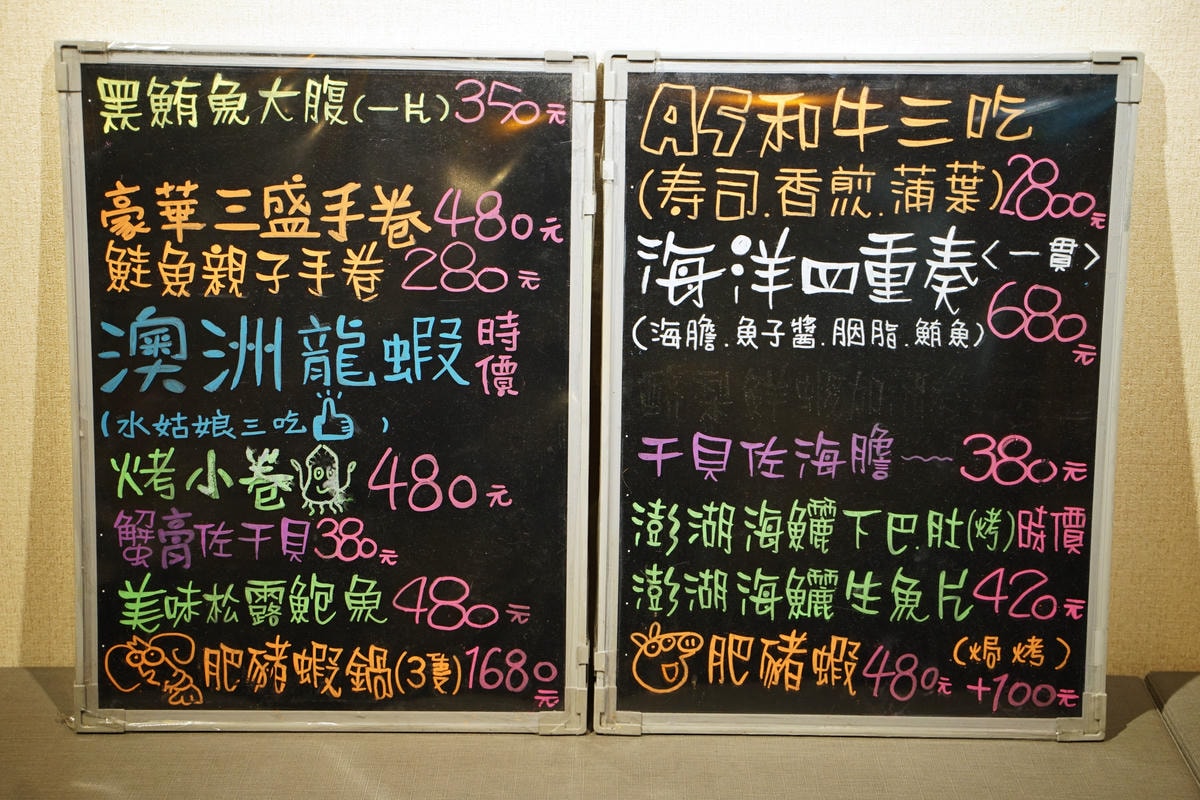 黑鮪魚大腹(一片)350元
豪華三盛手卷480元
鮭魚親子手卷280元
澳洲龍蝦時價
(水姑娘三吃)
烤小卷480元
蟹膏佐干貝380元
美味松露鮑魚480元
肥豬蝦鍋(3隻)1680元
A5和牛三吃
(寿司.香煎.蒲葉)2800元
海洋四重奏<一貫>
680元
(海膽.魚子醬.胭脂.鮪魚)
干貝佐海膽~~380元
澎湖海鱺下巴.肚(烤)時價
澎湖海鱺生魚片420元
肥豬蝦480元(焗烤)+100元